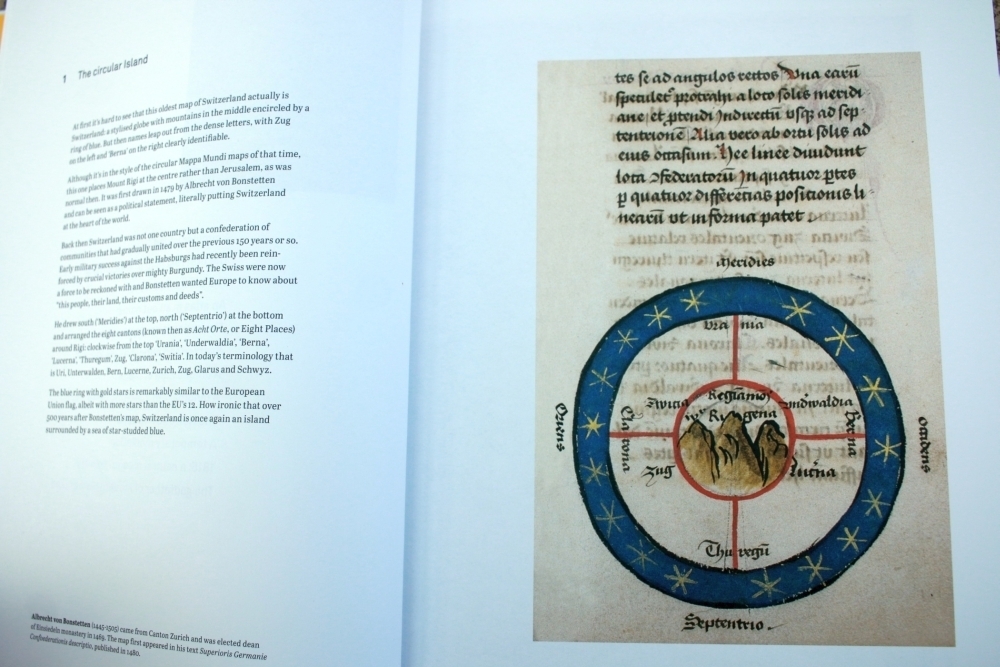 1 The circular Island
At first it's hard to see that this oldest map of Switzerland actually is
Switzerland: a stylised globe with mountains in the middle encircled by a
ring of blue. But then names leap out from the dense letters, with Zug
on the left and 'Berna' on the right clearly identifiable.
Although it's in the style of the circular Mappa Mundi maps of that time,
this one places Mount Rigi at the centre rather than Jerusalem, as was
normal then. It was first drawn in 1479 by Albrecht von Bonstetten
and can be seen as a political statement, literally putting Switzerland
at the heart of the world.
Back then Switzerland was not one country but a confederation of
communities that had gradually united over the previous 150 years or so.
Early military success against the Habsburgs had recently been rein-
forced by crucial victories over mighty Burgundy. The Swiss were now
a force to be reckoned with and Bonstetten wanted Europe to know about
"this people, their land, their customs and deeds".
He drew south ('Meridies') at the top, north ('Septentrio') at the bottom
and arranged the eight cantons (known then as Acht Orte, or Eight Places)
around Rigi: clockwise from the top 'Urania', 'Underwaldia', 'Berna',
'Lucerna', 'Thuregum', Zug, 'Clarona', 'Switia'. In today's terminology that
is Uri, Unterwalden, Bern, Lucerne, Zurich, Zug, Glarus and Schwyz.
The blue ring with gold stars is remarkably similar to the European
Union flag, albeit with more stars than the EU's 12. How ironic that over
500 years after Bonstetten's map, Switzerland is once again an island
surrounded by a sea of star-studded blue.
Albrecht von Bonstetten (1445-1505) came from Canton Zurich and was elected dean
of Einsiedeln monastery in 1469. The map first appeared in his text Superioris Germanie
Confederationis descriptio, published in 1480.
tes se ad angulos rectos Vna earū
protrahi a loco solis meridi
ane et ꝑtendi Indirectū vsqꝫ ad sep
tentrionē Alia vero ab ortu solis ad
eius occasum. Hee linee diuidunt
loca ꝯfederatorū In quatuor ꝑtes
ꝑ quatuor differētias positionis li
nearū vt in forma patet .
Meridies
Vra nia
Switia
vndwaldia
Ri gena
Oriens
Clarona
Berna
Zug
Thuregū
Septentrio